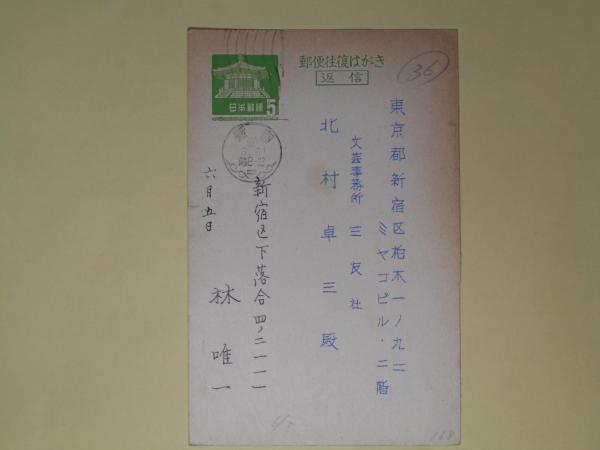 郵便往復はがき
返信
日本郵便 5
36
東京都新宿区柏木一ノ九二
ミヤコビル・二階
文芸事務所 三友社
北村卓三殿
新宿区下落合四ノ二一一一
六月五日
林唯一
6/5
168